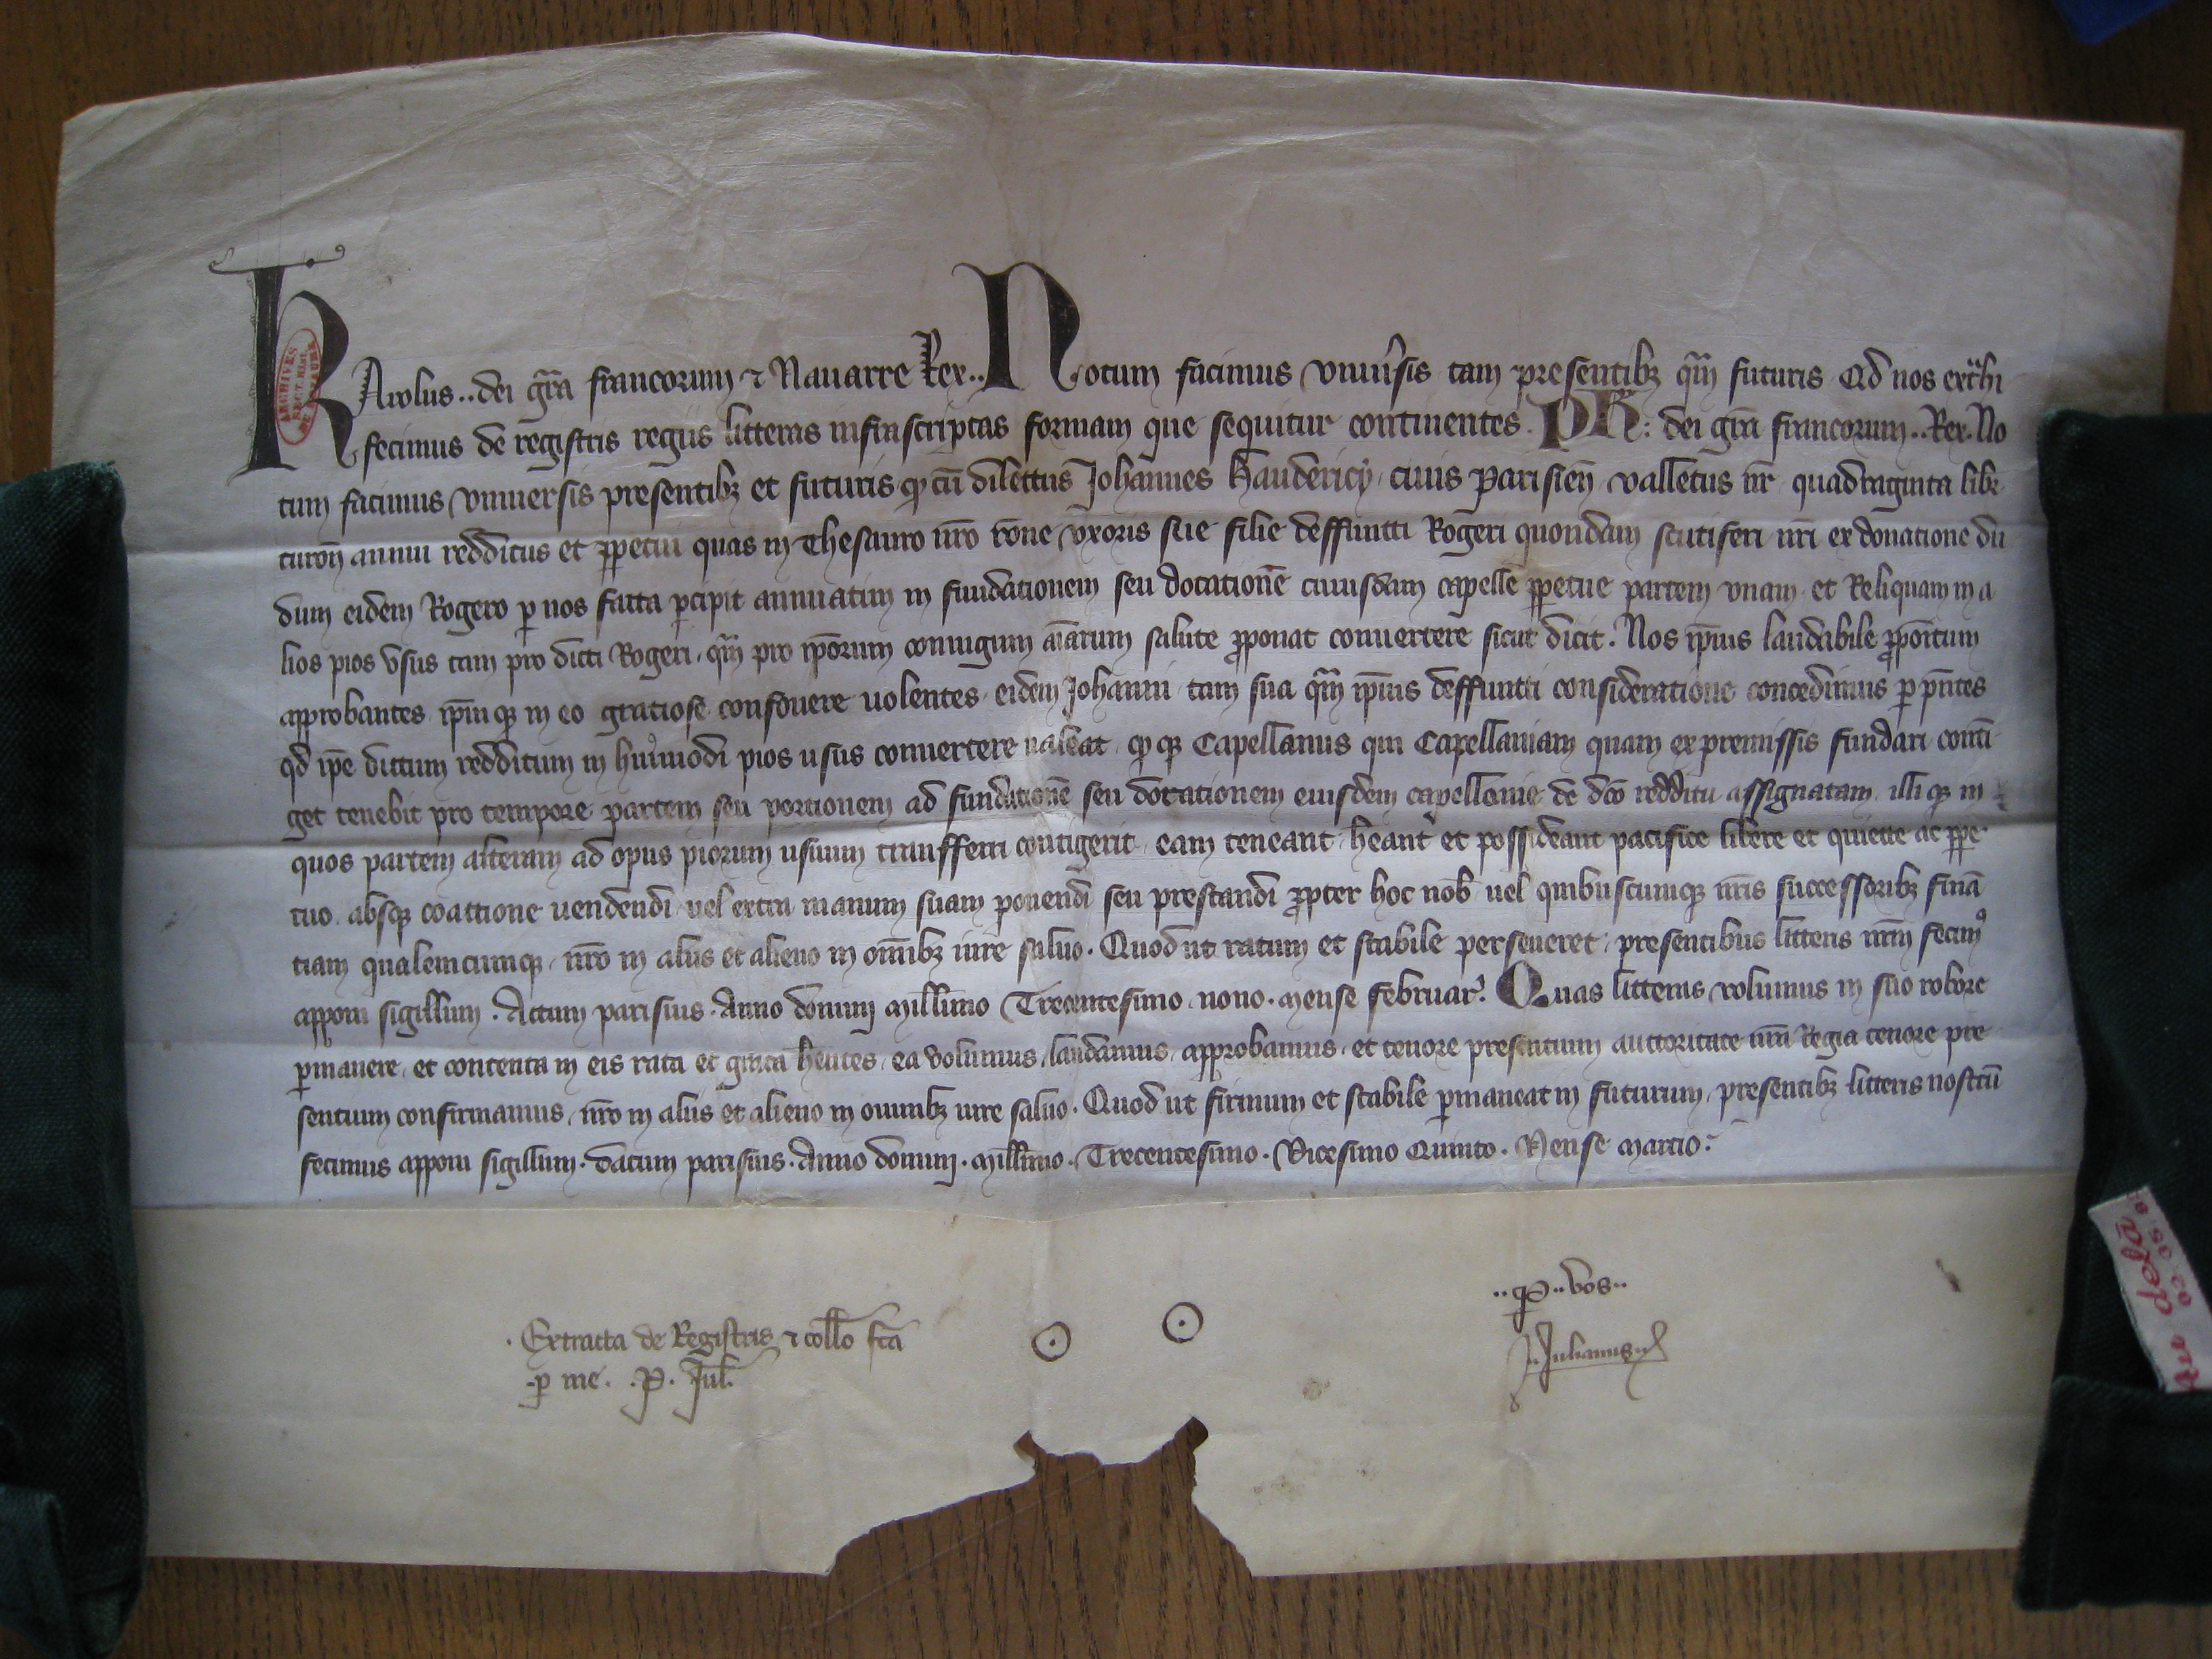 KArolus.. dei gr̃a francorum ⁊ Nauarre Rex.. Notum facimus vniuˀsis tam presentibꝫ qͣm futuris Qd nos extͣhi
fecimus de registris regiis litteras infrascriptas formam que sequitur continentes. PH̃: dei gr̃a francorum.. Rex. No
tum facimus vniuersis presentibꝫ et futuris ꝙ cũ dilettus Johannes Hauderici, ciuis Parisieñ valletus nr̃ quadraginta libr̃
turoñ annui redditus et ꝑpetui quas in Thesauro nr̃o rõne vxoris sue filie deffuncti Rogeri quondam scutiferi nr̃i ex donatione du
dum eidem Rogero ꝑ nos facta ꝑcipit annuatim in fundationem seu dotationẽ cuiusdam capelle ꝑpetue partem vnam et Reliquam in a
lios pios vsus tam pro dicti Rogeri, qͣm pro ip̃orum coniugum aĩarum salute ꝓponat conuertere sicut dicit. Nos ip̃ius laudabile ꝓpoĩtum
approbantes ip̃mqꝫ in eo gratiose confouere uolentes eidem Johanni tam sua qͣm ip̃ius deffuncti consideratione concedimus ꝑ pñtes
qd ip̃e dictum redditum in huiˀmodi pios usus conuertere ualeat, ꝙqꝫ Capellanus qui Capellaniam quam ex premissis fundari conti
get tenebit pro tempore partem seu portionem ad fundationẽ seu dotationem eiusdem capellanie de dc̃o redditu assignatam, illiqꝫ in
quos partem alteram ad opus piorum usuum transferri contigerit, eam teneant, hẽant et possideant pacifice libere et quiete ac ꝑpe
tuo, absqꝫ coactione uendendi uel extra manum suam ponendi seu prestandi ꝓpter hoc nob̃ uel quibuscumqꝫ nr̃is successoribꝫ finã
tiam qualemcumqꝫ, nr̃o in aliis et alieno in om̃ibꝫ iure saluo. Quod ut ratum et stabile perseueret, presentibus litteris nr̃m fecimꝰ
apponi sigillum. Actum parisius. Anno domini Mill̃imo Trecentesimo nono. Mense februarˀ. Quas litteras volumus in suo robore
ꝑmanere, et contenta in eis rata et grata hẽntes, ea volumus, laudamus, approbamus, et tenore presentium auctoritate nr̃a Regia tenore pre
sentium confirmamus, nr̃o in aliis et alieno in omnibꝫ iure saluo. Quod ut firmum et stabile ꝑmaneat in futurum, presentibꝫ litteris nostrũ
fecimus apponi sigillum. Datum parisius. Anno domini. Mill̃imo. Trecentesimo. Vicesimo Quinto. Mense Marcio:
.. ꝑ .. vos..
. Extracta de Registris ⁊ coll̃o fc̃a
. ꝑ me. .P. Jul̃.
J. Julianus
ARCHIVES
SECT. HIST.